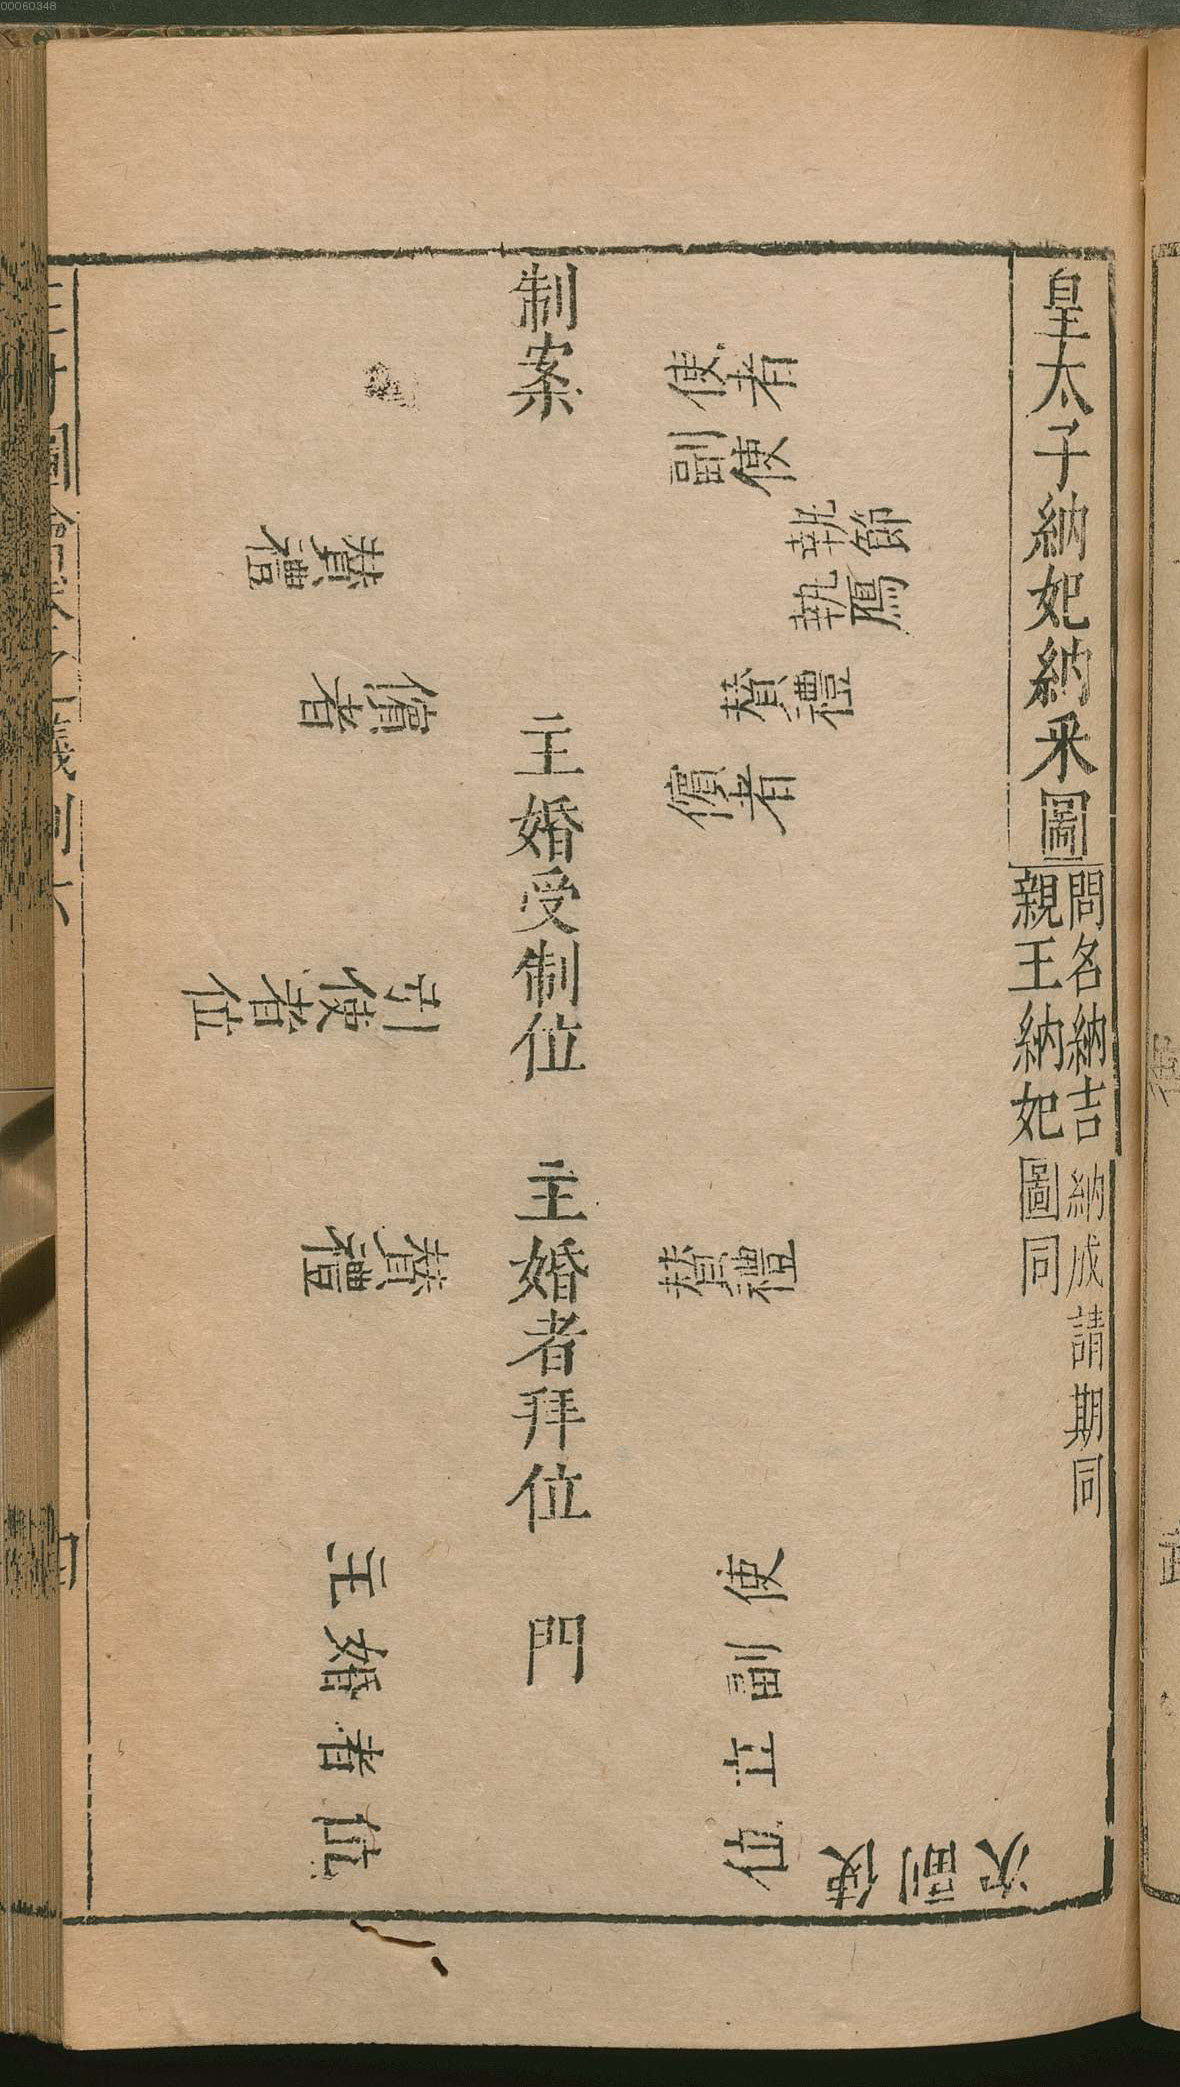 00060348
皇太子納妃納釆圖
問名納吉納成請期同
親王納妃圖同
使者
副使
執節
執鴈
贊禮
儐者
贊禮
使副立位
次副使
制案
主婚受制位
主婚者拜位
門
贊禮
儐者
引使者位
贊禮
主婚者位